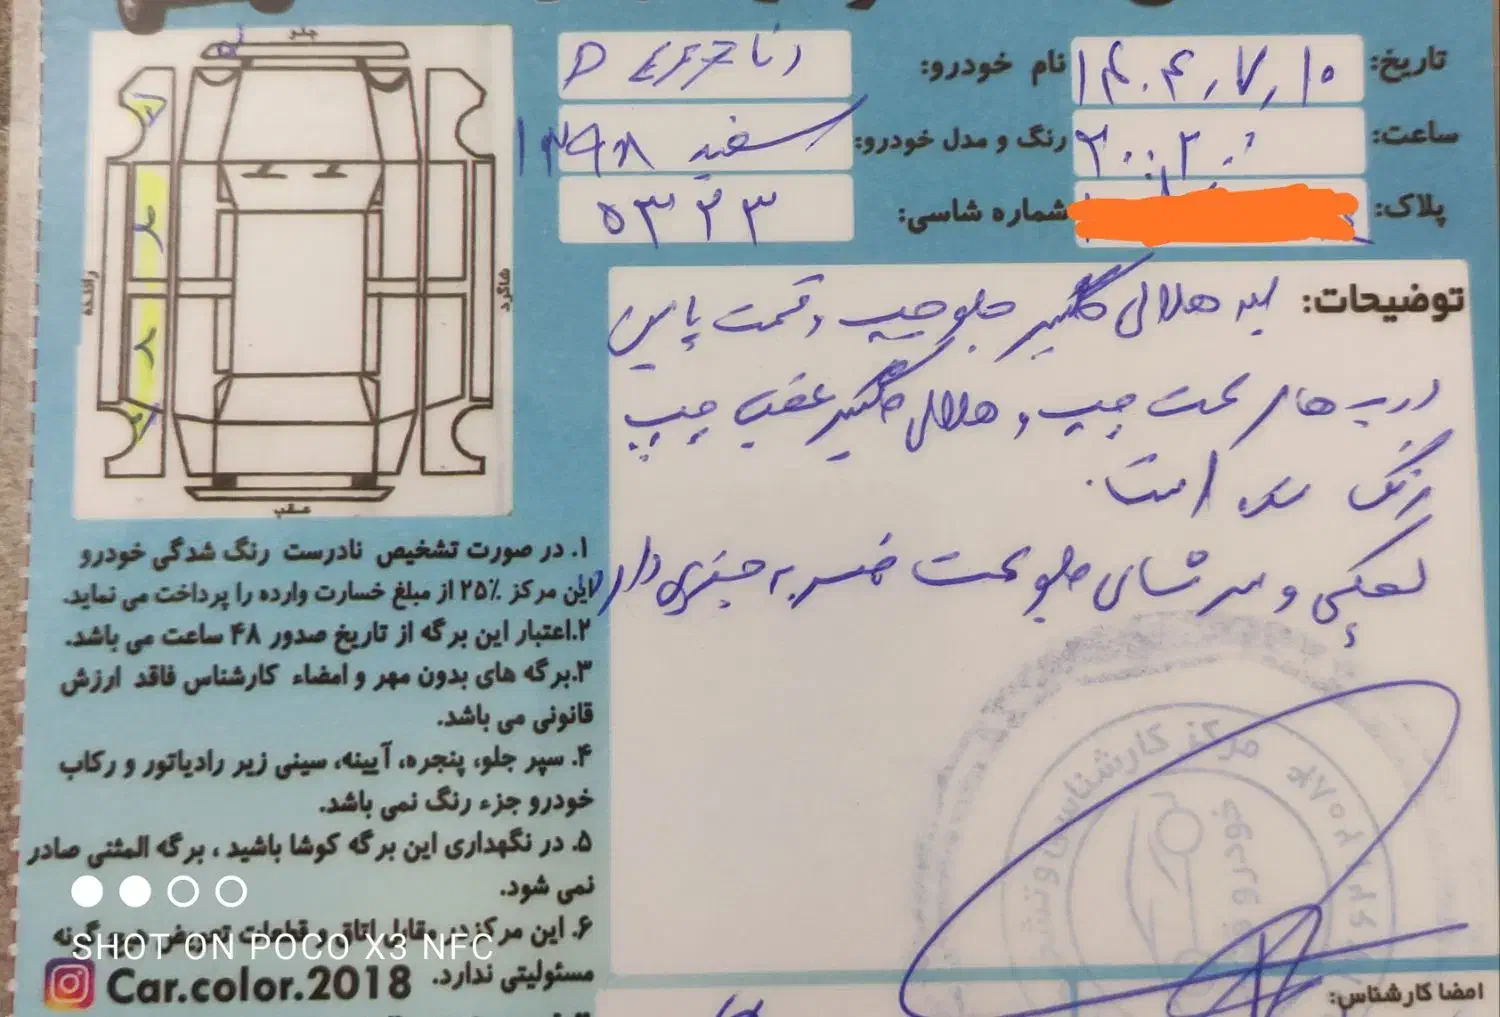 تاریخ: ۱۴۰۴٫۷٫۱۰
نام خودرو: دنا EF7 P
ساعت: ۲۰:۳۰
رنگ و مدل خودرو: سفید ۱۳۹۸
پلاک:
شماره شاسی: ۵۳۲۳
جلو
راننده
شاگرد
عقب
توضیحات: لبه هلالی گلگیر جلو چپ و قسمت پایین
درب های سمت چپ و هلالی گلگیر عقب چپ
رنگ شده است.
لچکی و سر شاسی جلو سمت ضربه جزیی دارد
۱. در صورت تشخیص نادرست رنگ شدگی خودرو
این مرکز ۲۵٪ از مبلغ خسارت وارده را پرداخت می نماید.
۲.اعتبار این برگه از تاریخ صدور ۴۸ ساعت می باشد.
۳.برگه های بدون مهر و امضاء کارشناس فاقد ارزش
قانونی می باشد.
۴. سپر جلو، پنجره، آیینه، سینی زیر رادیاتور و رکاب
خودرو جزء رنگ نمی باشد.
۵. در نگهداری این برگه کوشا باشید ، برگه المثنی صادر
نمی شود.
۶. این مرکز در مقابل اتاق و قطعات تعویض هیچگونه
مسئولیتی ندارد.
Car.color.2018
مرکز کارشناسی و تشخیص
امضا کارشناس:
SHOT ON POCO X3 NFC